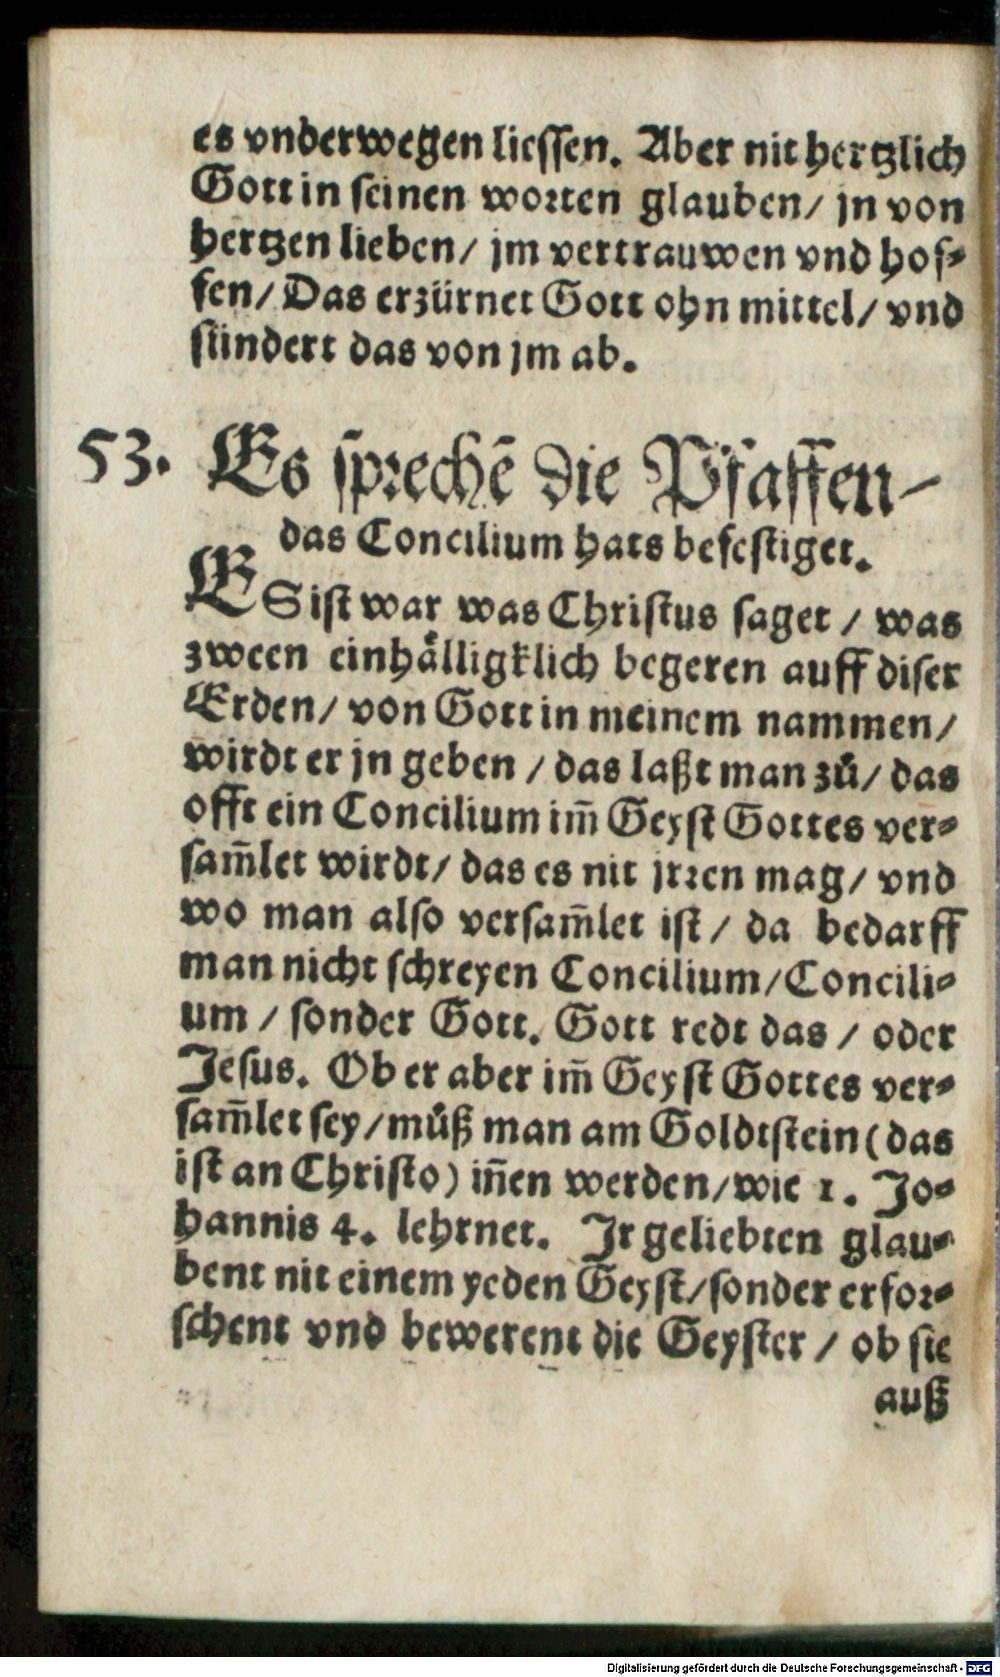 es vnderwegen liessen. Aber nit hertzlich
Gott in seinen worten glauben/ jn von
hertzen lieben/ jm vertrauwen vnd hof-
fen/ Das erzürnet Gott ohn mittel/ vnd
sündert das von jm ab.
53. Es sprechẽ die Pfaffen-
das Concilium hats befestiget.
ES ist war was Christus saget / was
zween einhålligklich begeren auff diser
Erden/ von Gott in meinem nammen/
wirdt er jn geben / das laßt man zů/ das
offt ein Concilium im̃ Geyst Gottes ver-
sam̃let wirdt/ das es nit jrren mag/ vnd
wo man also versam̃let ist / da bedarff
man nicht schreyen Concilium/Concili-
um / sonder Gott. Gott redt das / oder
Jesus. Ob er aber im̃ Geyst Gottes ver-
sam̃let sey/můß man am Goldtstein (das
ist an Christo) iñen werden/wie 1. Jo-
hannis 4. lehrnet. Jr geliebten glau-
bent nit einem yeden Geyst/sonder erfor-
schent vnd bewerent die Geyster / ob sie
auß
Digitalisierung gefördert durch die Deutsche Forschungsgemeinschaft - DFG